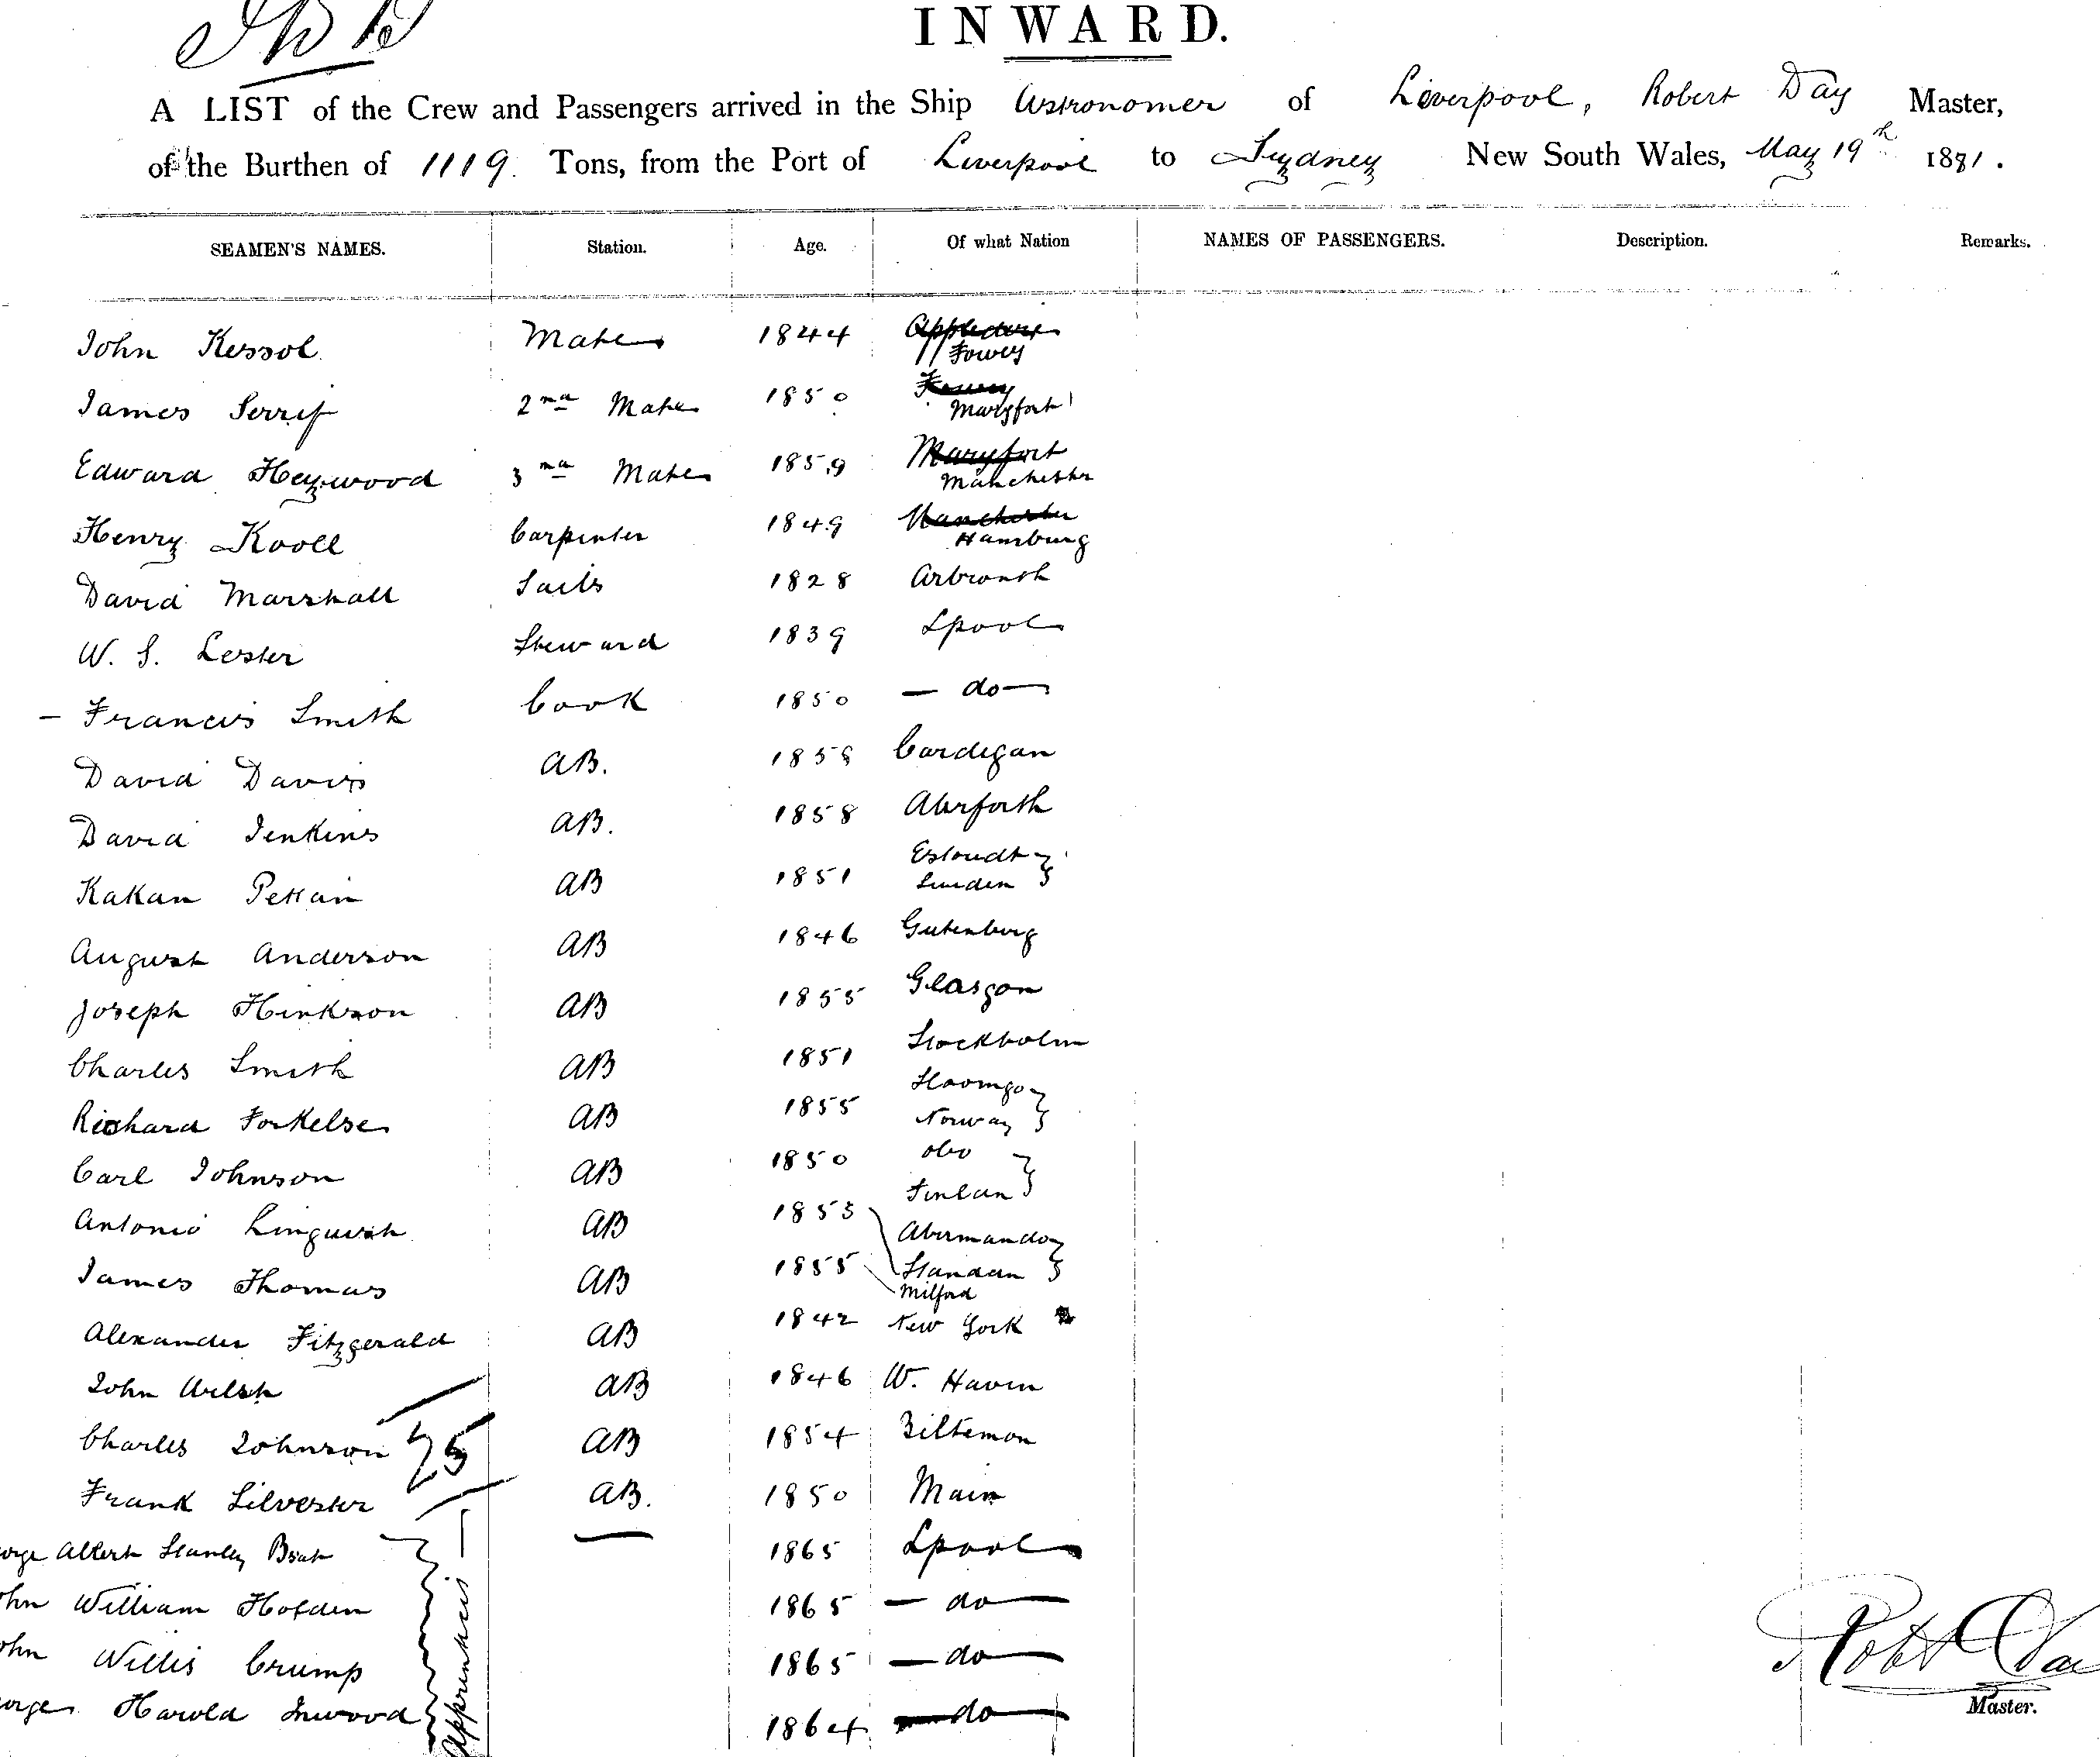 INWARD.
A LIST of the Crew and Passengers arrived in the Ship Astronomer of Liverpool, Robert Day Master,
of the Burthen of 1119 Tons, from the Port of Liverpool to Sydney New South Wales, May 19th 1881.
SEAMEN'S NAMES. Station. Age. Of what Nation NAMES OF PASSENGERS. Description. Remarks.
John Kessol Mate 1844 Appledore
Fowey
James Serrif 2nd Mate 1850 Fowey
Maryport
Edward Heywood 3rd Mate 1859 Maryport
Manchester
Henry Kooll Carpenter 1849 Manchester
Hamburg
David Marshall Sails 1828 Arbroath
W. S. Lester Steward 1839 Lpool
– Francis Smith Cook 1850 — do —
David Davis AB. 1858 Cardigan
David Jenkins AB. 1858 Aberporth
Kakan Pettain AB 1851
Sweden
August Anderson AB 1846 Gutenburg
Joseph Hinkson AB 1855 Glasgow
Charles Smith AB 1851 Stockholm
Richard Torkelsen AB 1855
Norway
Carl Johnson AB 1850 Obo
Finlan
Antonio Linquist AB 1853
James Thomas AB 1855 Milford
Alexander Fitzgerald AB 1842 New York
John Welsh AB 1846 W. Haven
Charles Johnson 25 AB 1854
Frank Silvester AB. 1850 Main
orge Albert Stanley 1865 Lpool
hn William Holden 1865 — do —
ohn Willis Crump 1865 — do —
orge Harold Inwood Apprentices 1864 — do —
Robt Da
Master.